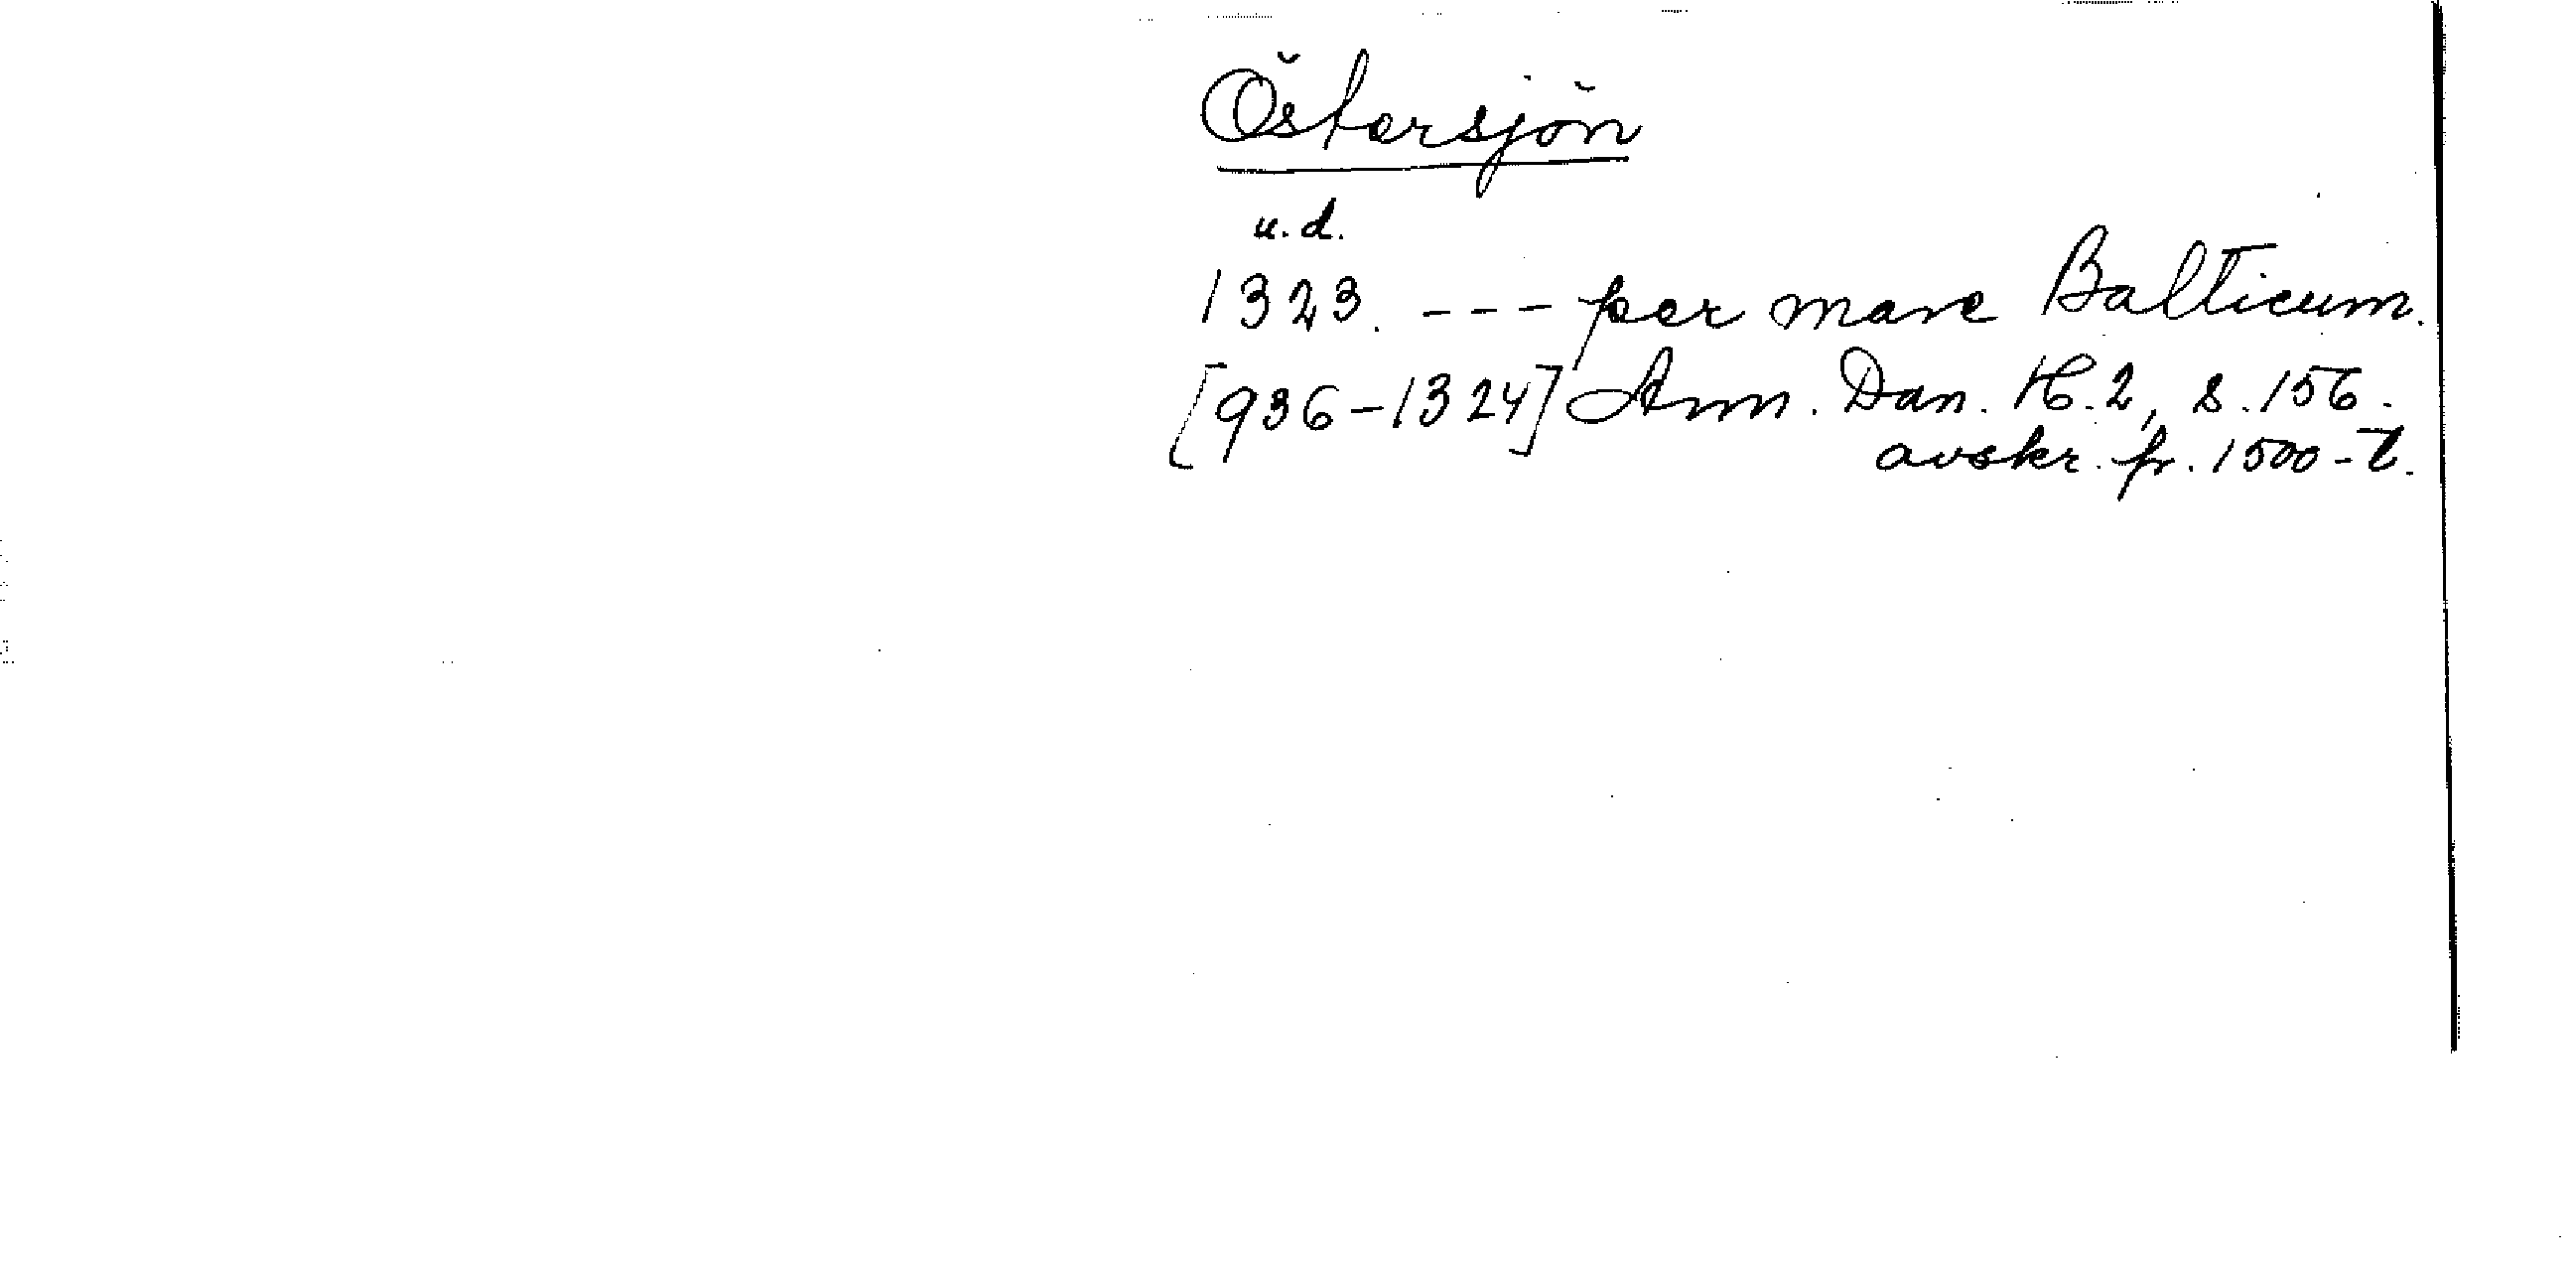 Östersjön
u.d.
1323. --- per mare Balticum.
[936-1324] Ann. Dan. H.2, s.156.
avskr. fr. 1500-t.